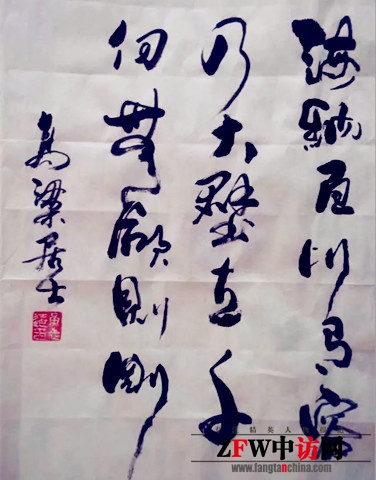 海納百川有容
乃大壁立千
仞無欲則剛
高梁居士
精英人
ZFW中访网
www.fangtanchina.com